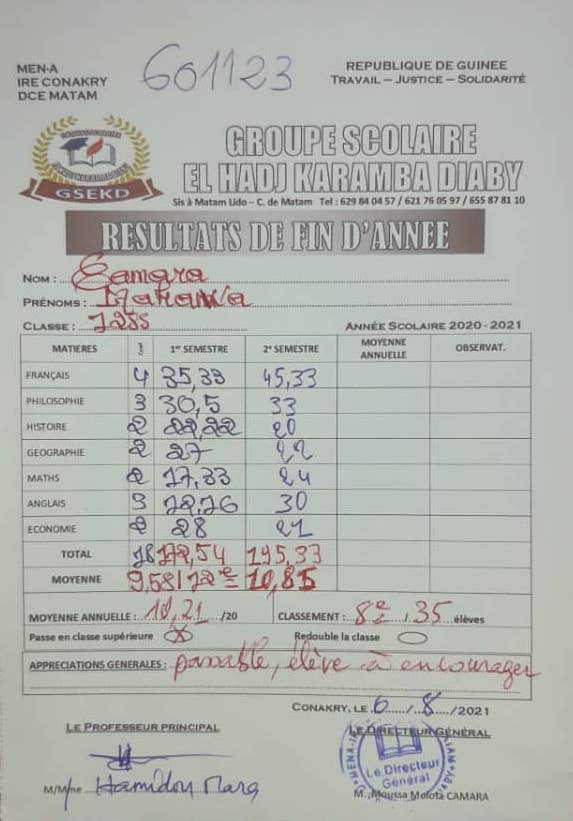 601123
MEN-A
IRE CONAKRY
DCE MATAM
REPUBLIQUE DE GUINEE
TRAVAIL – JUSTICE – SOLIDARITÉ
GSEKD
GROUPE SCOLAIRE
EL HADJ KARAMBA DIABY
Sis à Matam Lido – C. de Matam Tel : 629 84 04 57 / 621 76 05 97 / 655 87 81 10
RESULTATS DE FIN D'ANNEE
NOM : Camara
PRÉNOMS :
CLASSE : 12SS ANNÉE SCOLAIRE 2020 - 2021
MATIERES 1er SEMESTRE 2e SEMESTRE MOYENNE ANNUELLE OBSERVAT.
FRANÇAIS 4 35,33 45,33
PHILOSOPHIE 3 30,5 33
HISTOIRE 2 22,22 20
GEOGRAPHIE 2 27 22
MATHS 2 17,33 24
ANGLAIS 3 30
ECONOMIE 2 28 21
TOTAL 18 172,54 195,33
MOYENNE 9,58/12e 10,85
MOYENNE ANNUELLE : 10,21 /20 CLASSEMENT : 8e / 35 élèves
Passe en classe supérieure X Redouble la classe
APPRECIATIONS GENERALES : passable, élève à encourager
CONAKRY, LE 6 / 8 /2021
LE PROFESSEUR PRINCIPAL LE DIRECTEUR GÉNÉRAL
Le Directeur
Général
M/Mme Hamidou Mara M. Moussa Molota CAMARA